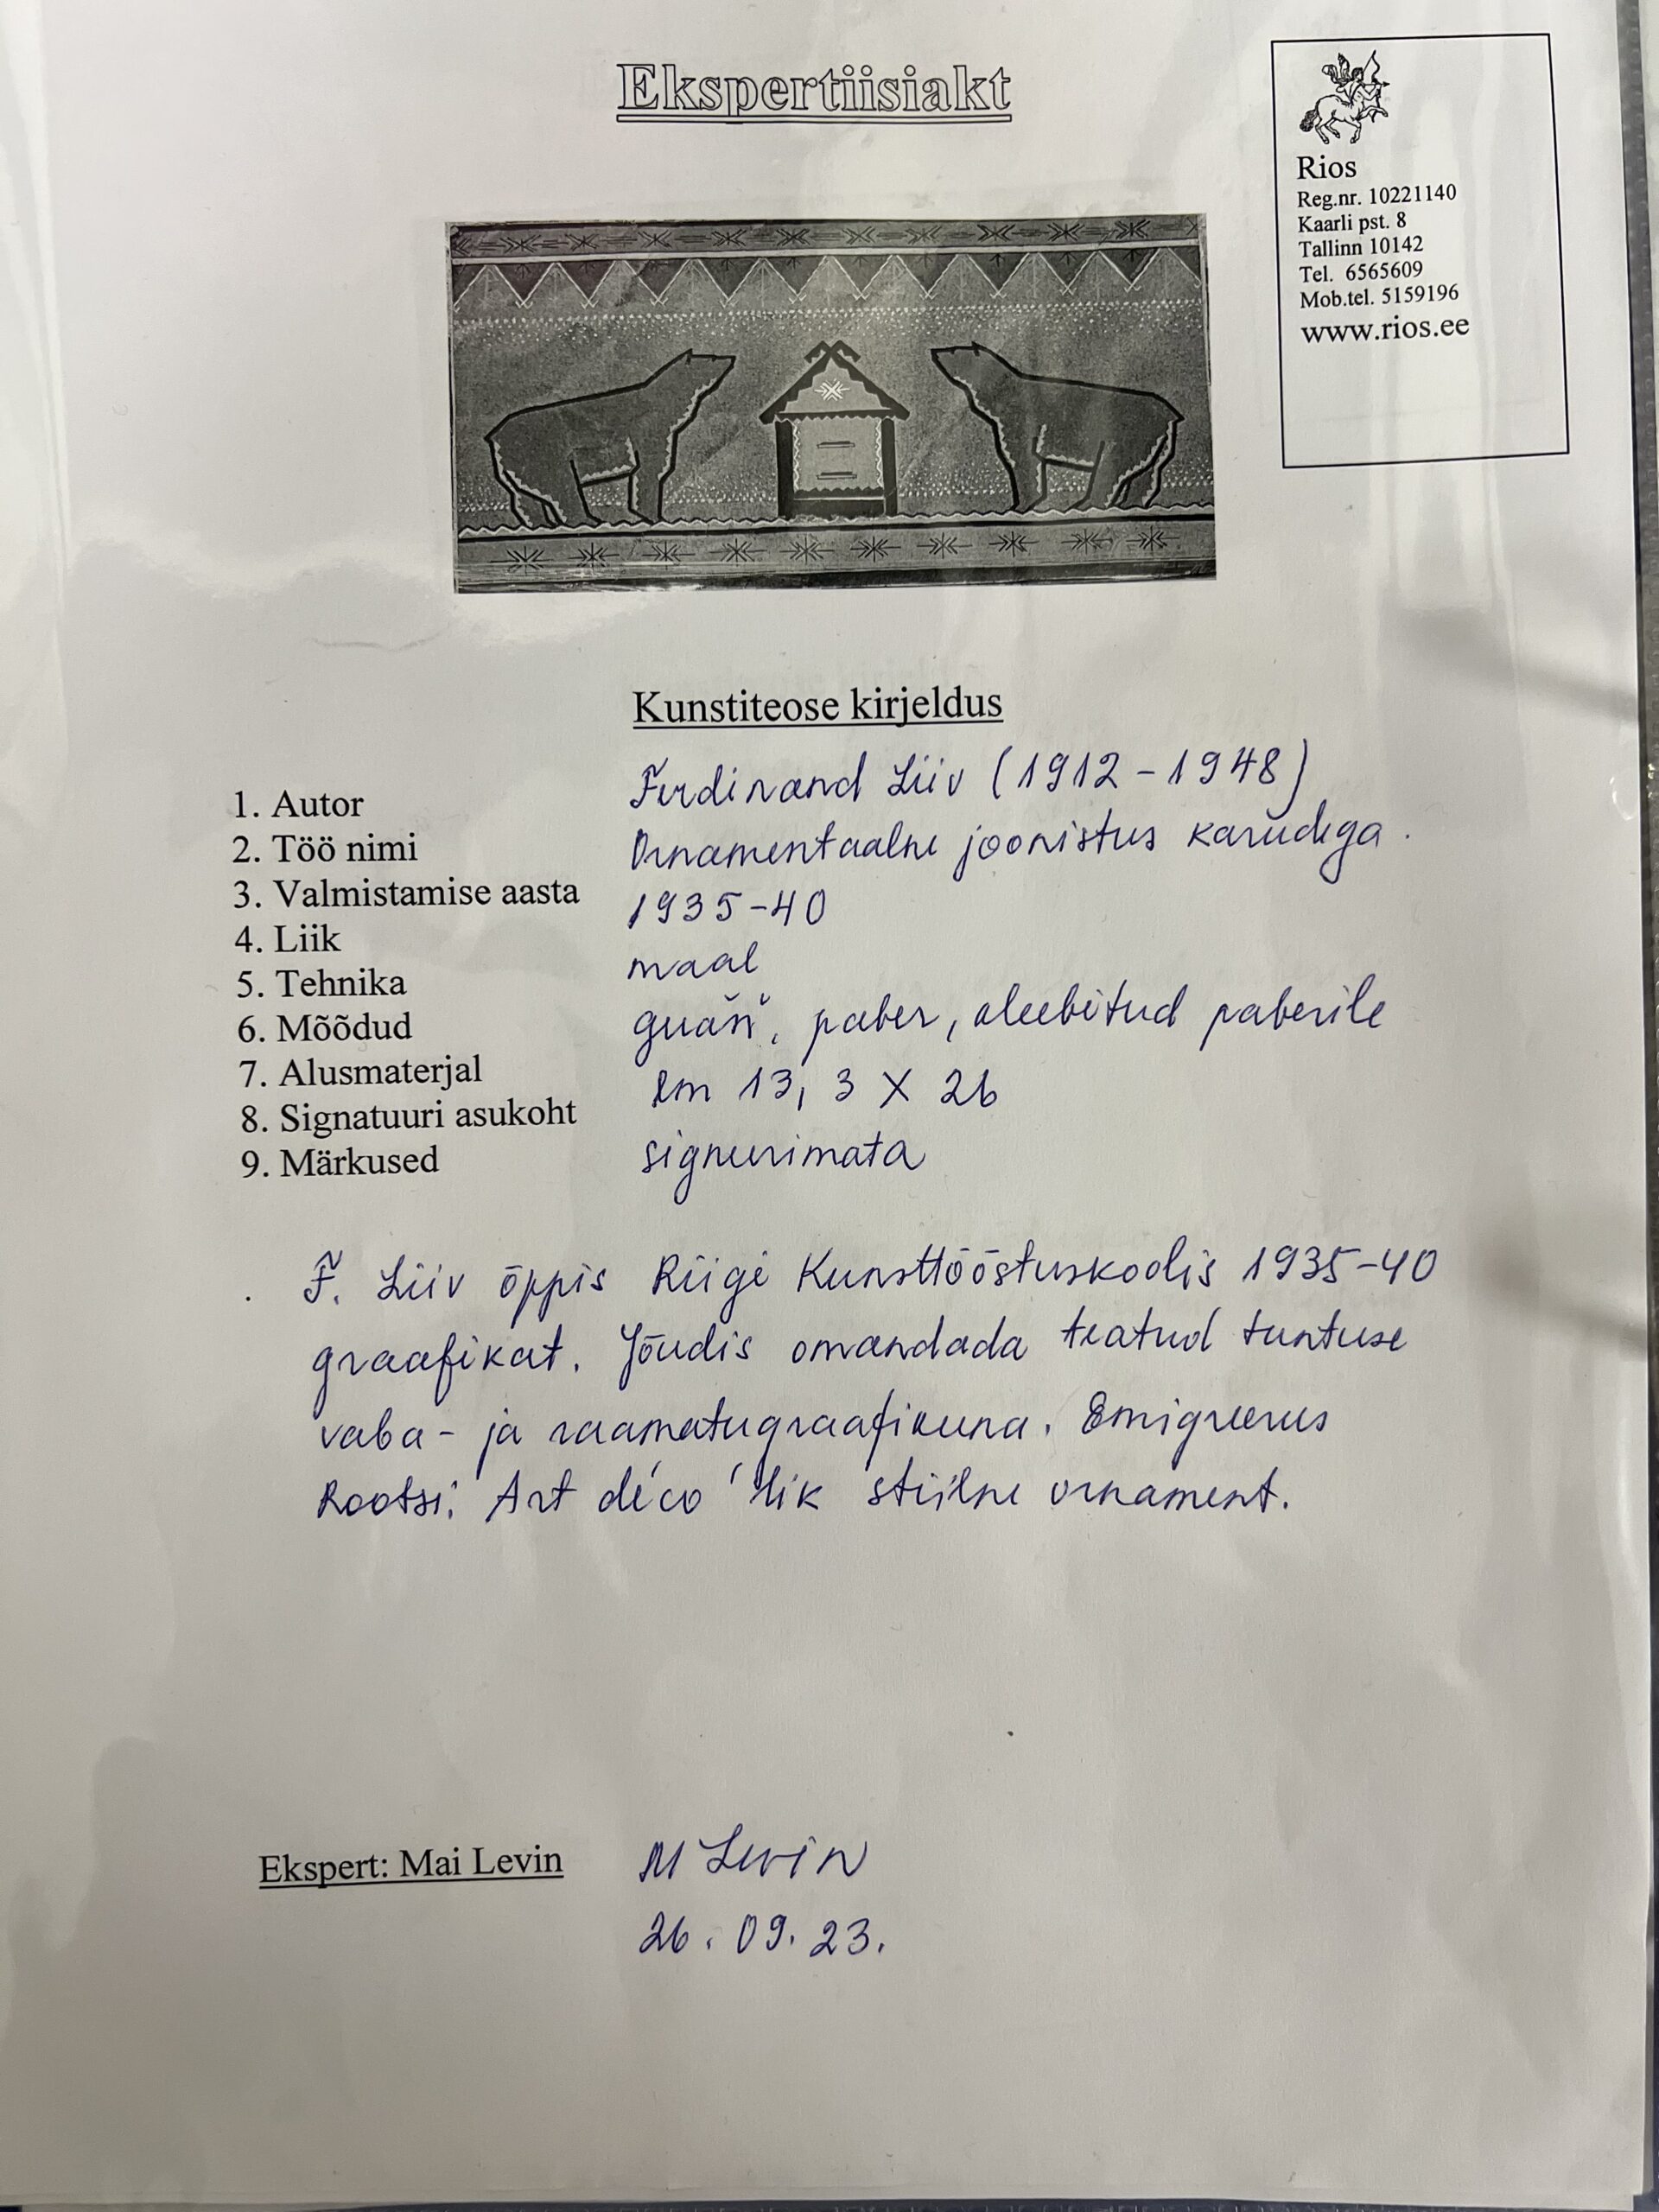 Ekspertiisiakt
Rios
Reg.nr. 10221140
Kaarli pst. 8
Tallinn 10142
Tel. 6565609
Mob.tel. 5159196
www.rios.ee
Kunstiteose kirjeldus
1. Autor Ferdinand Liiv (1912-1948)
2. Töö nimi Ornamentaalne joonistus karudega.
3. Valmistamise aasta 1935-40
4. Liik maal
5. Tehnika guašš, paber, kleebitud paberile
6. Mõõdud lm 13,3 X 26
7. Alusmaterjal
8. Signatuuri asukoht signeerimata
9. Märkused
F. Liiv õppis Riigi Kunsttööstuskoolis 1935-40
graafikat. Jõudis omandada teatud tuntuse
vaba- ja raamatugraafikuna. Emigreerus
Rootsi. Art déco'lik stiilne ornament.
Ekspert: Mai Levin M Levin
26.09.23.